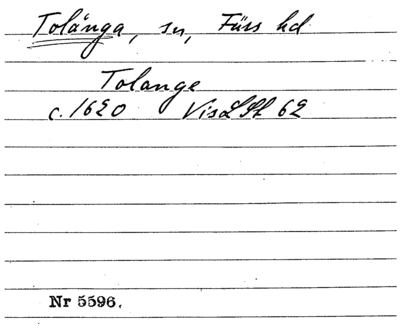 Tolånga, sn, Färs hd
Tolange
c. 1620 VisLSt 62
Nr 5596.